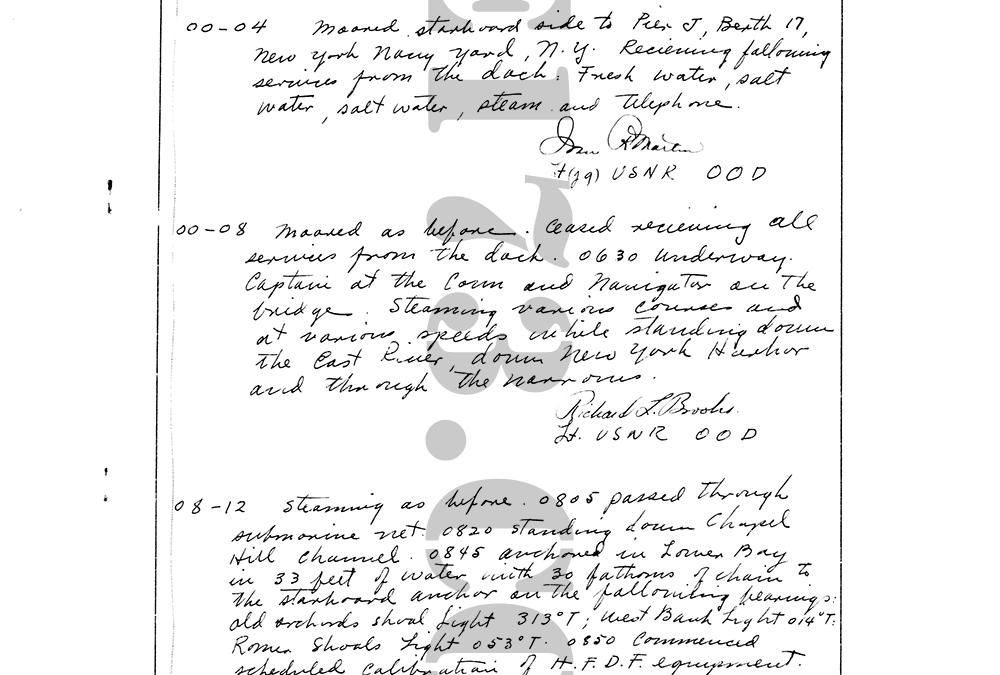 00-04 Moored starboard side to Pier J, Berth 17,
New York Navy Yard, N.Y. Recieving following
services from the dock: Fresh water, salt
water, salt water, steam and telephone.
Martin
(jg) USNR OOD
00-08 Moored as before. Ceased recieving all
services from the dock. 0630 Underway.
Captain at the Conn and Navigator on the
bridge. Steaming various courses and
at various speeds while standing down
the East River, down New York Harbor
and through the narrows.
Richard L. Brooks.
Lt. USNR OOD
08-12 Steaming as before. 0805 passed through
submarine net. 0820 standing down Chapel
Hill Channel. 0845 anchored in Lower Bay
in 33 feet of water with 30 fathoms of chain to
the starboard anchor on the following bearings:
old orchards shoal Light 313°T; West Bank Light 014°T:
Romer Shoals Light 053°T. 0850 Commenced
scheduled calibration of H.F.D.F. equipment.